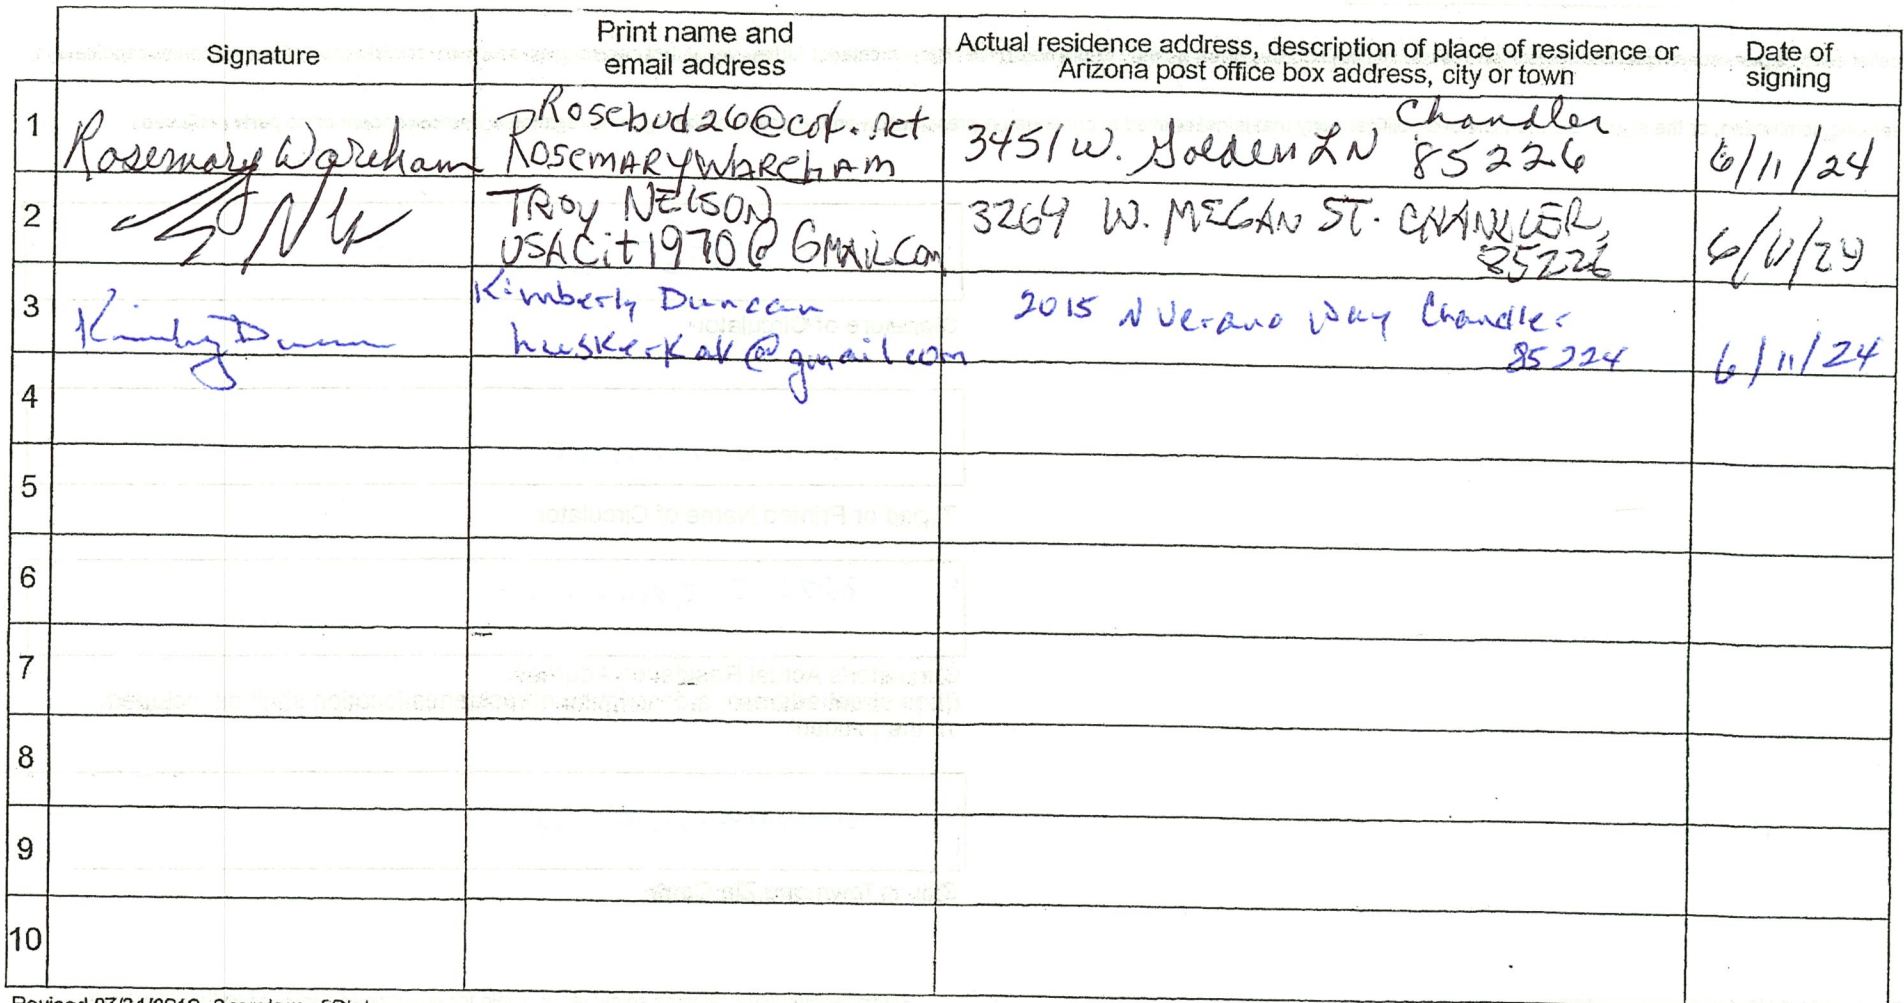 Signature
Print name and
email address
Actual residence address, description of place of residence or
Arizona post office box address, city or town
Date of
signing
1
Rosemary Wareham
Rosebud26@cox.net
ROSEMARY WAREHAM
Chandler
3451 W. Golden LN 85226
6/11/24
2
TROY NELSON
USACit1970@GMAIL.COM
3264 W. MEGAN ST. CHANDLER,
85226
6/11/24
3
Kimberly Duncan
huskerkak@gmail.com
2015 N Verano Way Chandler
85224
6/11/24
4
5
6
7
8
9
10